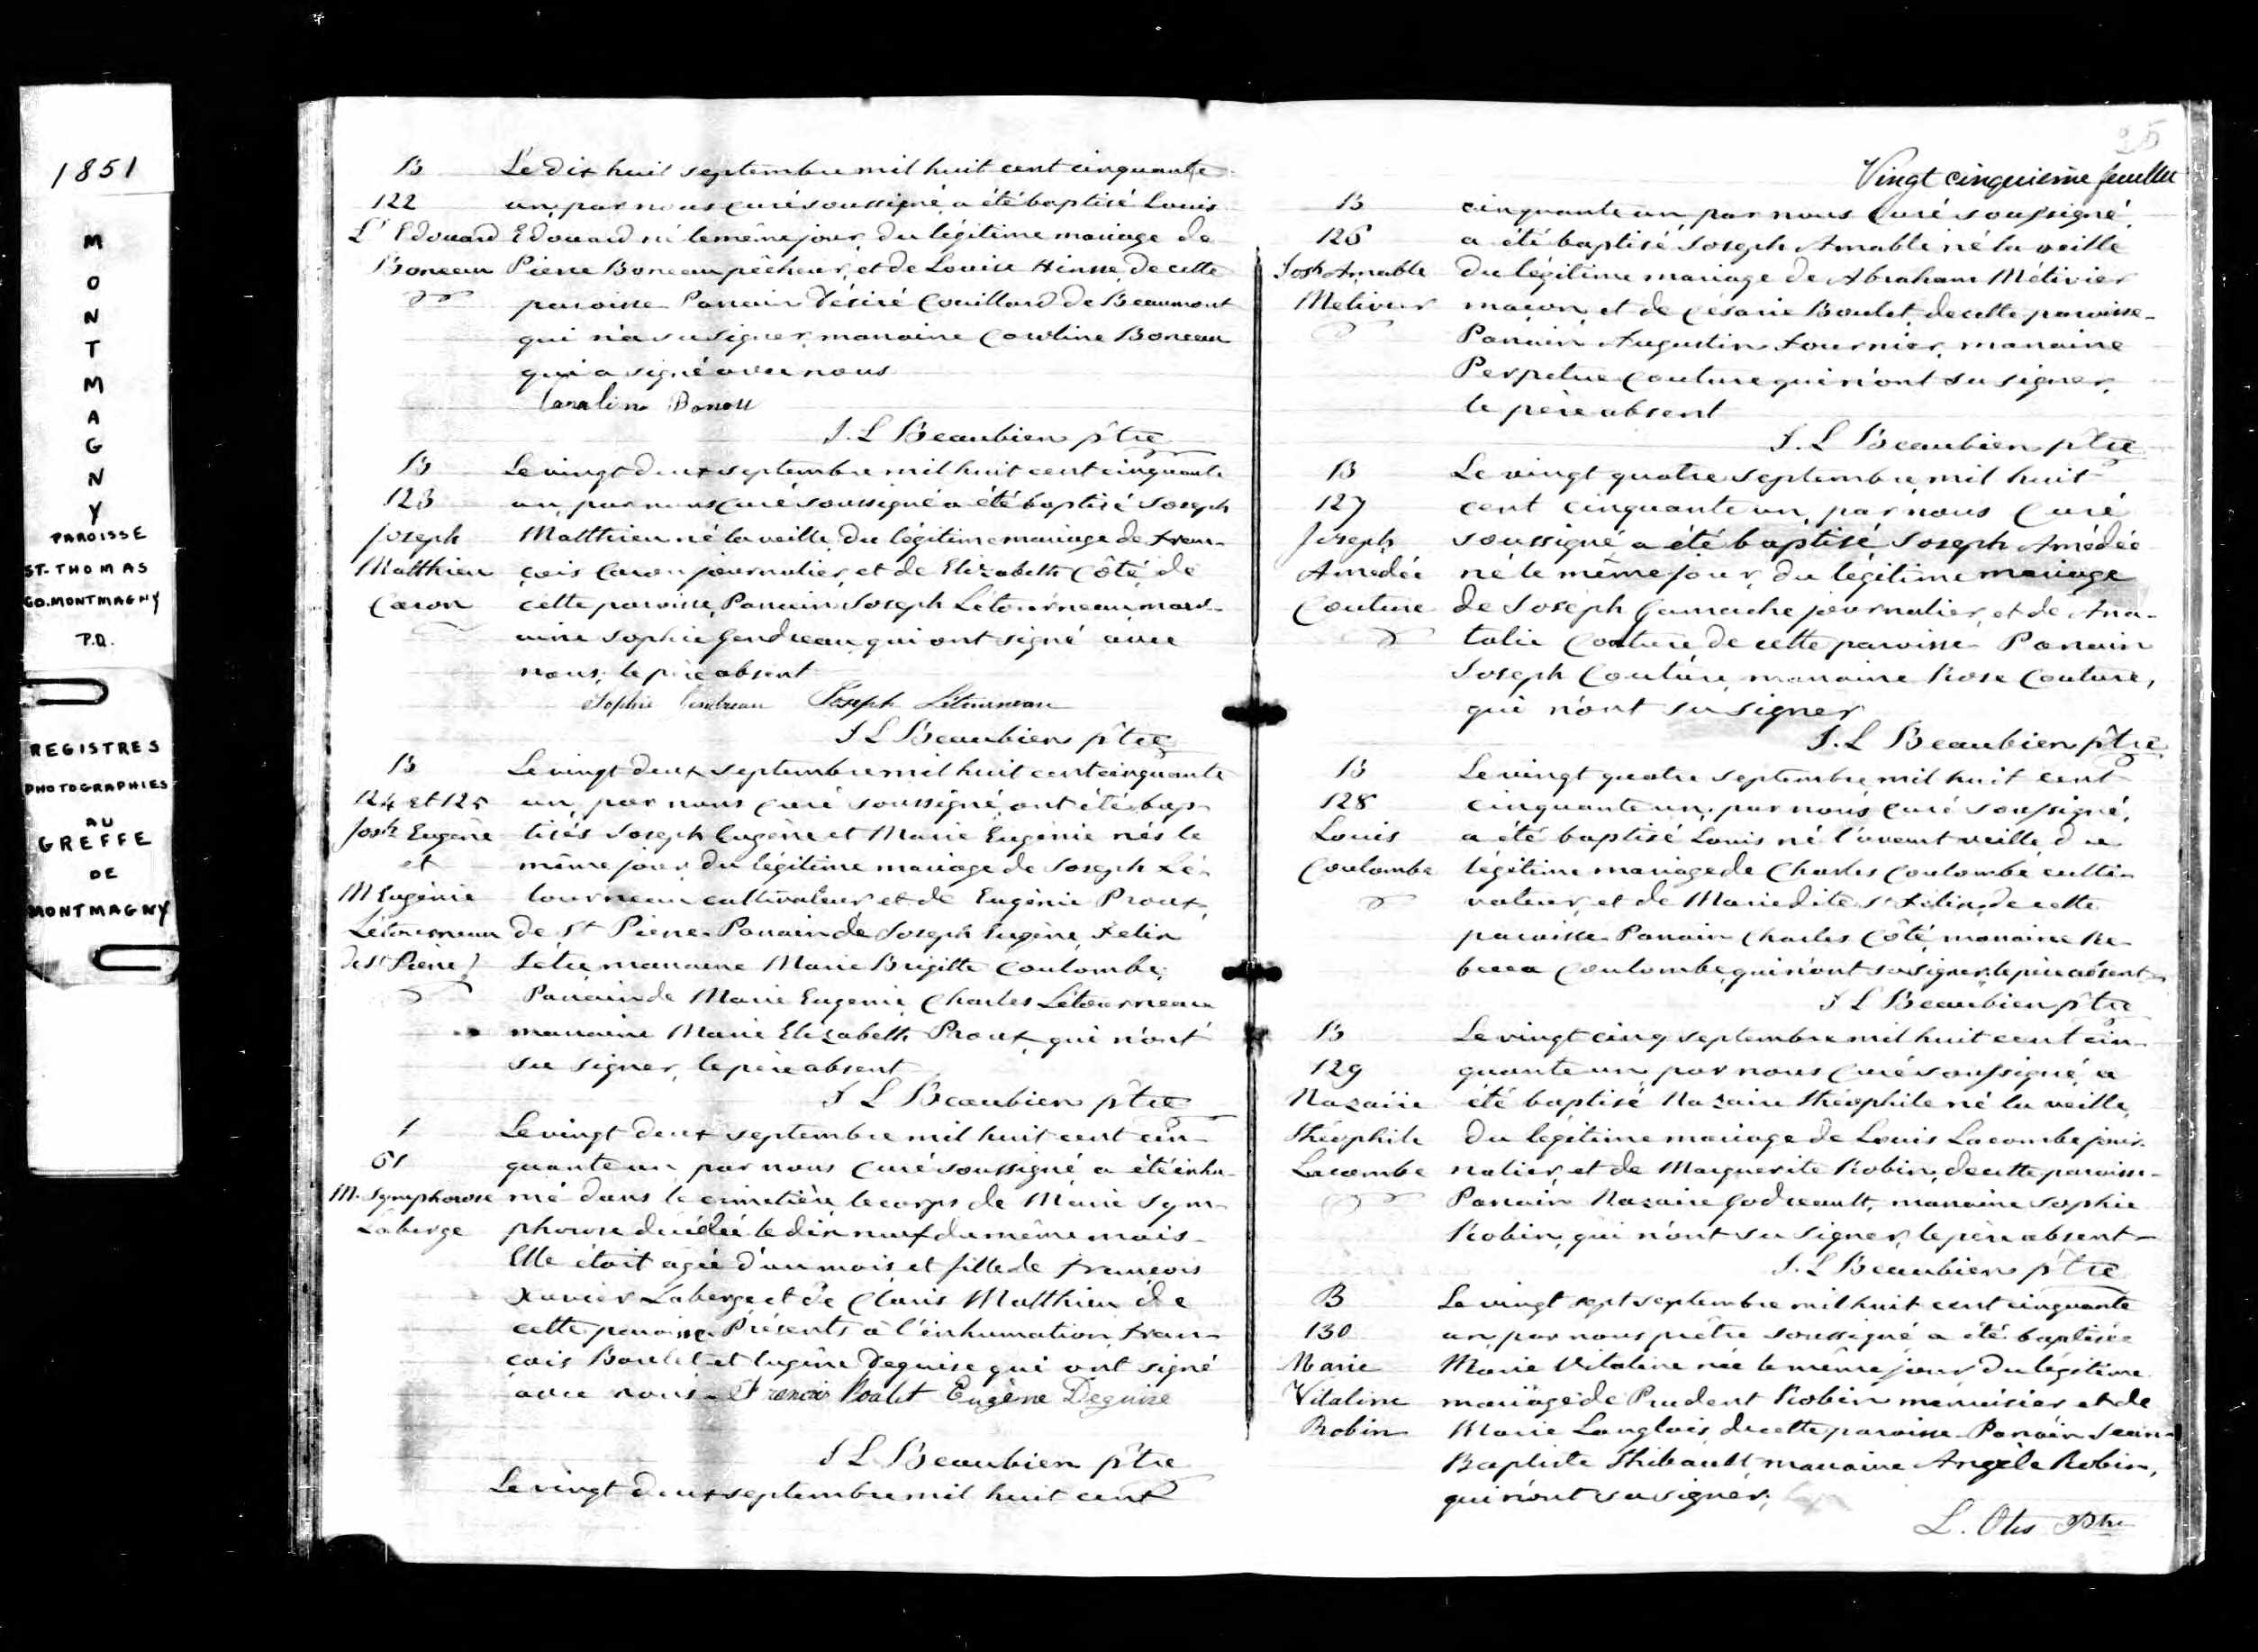 1851
MONTMAGNY
PAROISSE
ST-THOMAS
CO. MONTMAGNY
P.Q.
REGISTRES
PHOTOGRAPHIES
AU
GREFFE
DE
MONTMAGNY
B
122
Ls Edouard
Boneau
Le dix huit septembre mil huit cent cinquante
un, par nous Curé soussigné a été baptisé Louis
Edouard né le même jour du légitime mariage de
Pierre Boneau pêcheur, et de Louise Hinse de cette
paroisse Parrain Désiré Couillard de Beaumont
qui n'a su signer, marraine Caroline Boneau
qui a signé avec nous
J. L Beaubien ptre
B
123
Joseph
Matthieu
Caron
Le vingt deux septembre mil huit cent cinquante
un, par nous Curé soussigné a été baptisé Joseph
Matthieu né la veille du légitime mariage de Fran-
çois Caron journalier, et de Elizabeth Côté de
cette paroisse, Parrain Joseph Letourneau marr-
aine Sophie Gendreau qui ont signé avec
nous, le père absent
Sophie Gendreau Joseph Létourneau
J L Beaubien ptre
B
124 et 125
Josh Eugène
et
M Eugénie
Létourneau
de St Pierre
Le vingt deux septembre mil huit cent cinquante
un, par nous Curé soussigné, ont été bap-
tisés Joseph Eugène et Marie Eugénie nés le
même jour du légitime mariage de Joseph Lé-
tourneau cultivateur et de Eugénie Proux,
de St Pierre. Parrain de Joseph Eugène, Felix
Létu, marraine Marie Brigitte Coulombe;
Parrain de Marie Eugenie, Charles Létourneau
marraine Marie Elizabeth Proux, qui n'ont
su signer, le père absent
J L Beaubien ptre
61
M. Symphorose
Laberge
Le vingt deux septembre mil huit cent cin-
quante un par nous Curé soussigné a été inhu-
mé dans le cimetière le corps de Marie Sym-
phorose décédée le dix neuf du même mois.
Elle était agée d'un mois et fille de François
Xavier Laberge et de Claris Matthieu de
cette paroisse. Présents à l'inhumation Fran-
çois Boulet et Eugène Deguise qui ont signé
avec nous. Francois Boulet Eugène Deguise
J L Beaubien ptre
Le vingt deux septembre mil huit cent
25
Vingt cinquieme feuillet
B
126
Josh Amable
Metivier
cinquante un, par nous Curé soussigné
a été baptisé Joseph Amable né la veille
du légitime mariage de Abraham Métivier
maçon, et de Césarie Boulet, de cette paroisse.
Parrain Augustin Fournier, marraine
Perpetue Couture qui n'ont su signer,
le père absent
J. L Beaubien ptre
B
127
Joseph
Amedée
Couture
Le vingt quatre septembre, mil huit
cent cinquante un, par nous Curé
soussigné a été baptisé, Joseph Amédée
né le même jour, du légitime mariage
de Joseph Gamache journalier, et de Ana-
talie Couture de cette paroisse Parrain
Joseph Couture, marraine Rose Couture,
qui n'ont su signer
J. L Beaubien ptre
B
128
Louis
Coulombe
Le vingt quatre septembre mil huit cent
cinquante un, par nous curé soussigné,
a été baptisé Louis né l'avant veille du
légitime mariage de Charles Coulombe culti-
vateur, et de Marie dite St Felix, de cette
paroisse. Parrain Charles Côté, marraine Re-
becca Coulombe, qui n'ont su signer, le père absent
J L Beaubien ptre
B
129
Nazaire
Théophile
Lacombe
Le vingt cinq septembre mil huit cent cin-
quante un par nous Curé soussigné, a
été baptisé Nazaire Théophile né la veille,
du légitime mariage de Louis Lacombe jour-
nalier, et de Marguerite Robin, de cette paroisse.
Parrain Nazaire Godreault, marraine Sophie
Robin, qui n'ont su signer, le père absent
J. L Beaubien ptre
B
130
Marie
Vitaline
Robin
Le vingt sept septembre mil huit cent cinquante
un, par nous prêtre soussigné a été baptisée
Marie Vitaline née le même jour du légitime
mariage de Prudent Robin menuisier et de
Marie Langlais de cette paroisse. Parrain Jean-
Baptiste Thibault marraine Angèle Robin,
qui n'ont su signer.
L. Otis Ptre